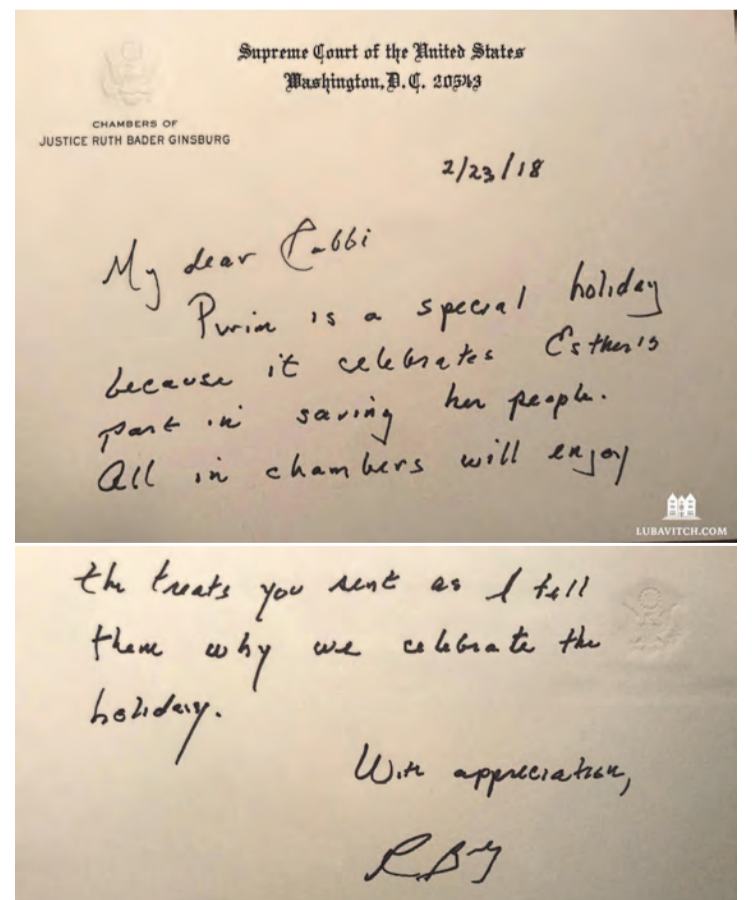 Supreme Court of the United States
Washington, D.C. 20543
CHAMBERS OF
JUSTICE RUTH BADER GINSBURG
2/23/18
My dear Rabbi
Purim is a special holiday
because it celebrates Esther's
part in saving her people.
All in chambers will enjoy
LUBAVITCH.COM
the treats you sent as I tell
them why we celebrate the
holiday.
With appreciation,